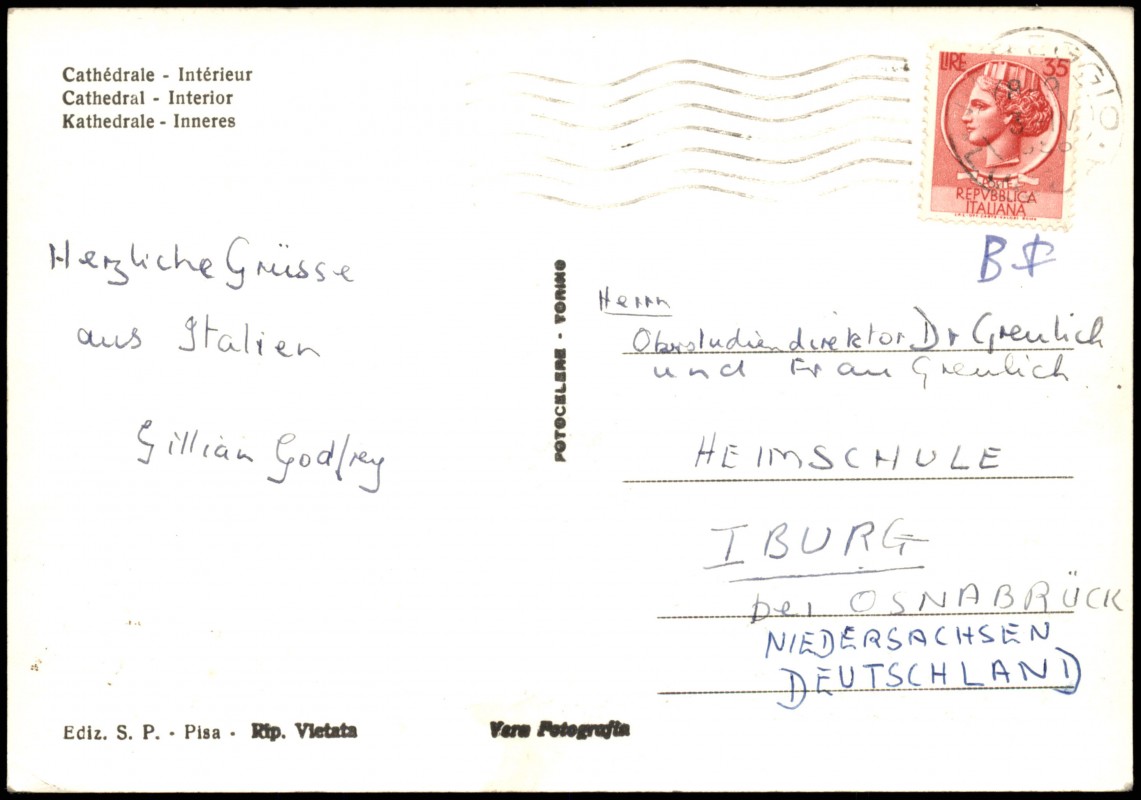 Cathédrale - Intérieur
Cathedral - Interior
Kathedrale - Inneres
LIRE 35
POSTE
REPVBBLICA
ITALIANA
Herzliche Grüsse
aus Italien
Gillian Godfrey
FOTOCELERE - TORINO
Herrn
Oberstudiendirektor Dr Greulich
und Frau Greulich
HEIMSCHULE
IBURG
bei OSNABRÜCK
NIEDERSACHSEN
DEUTSCHLAND
Ediz. S. P. - Pisa - Rip. Vietata
Vera Fotografia